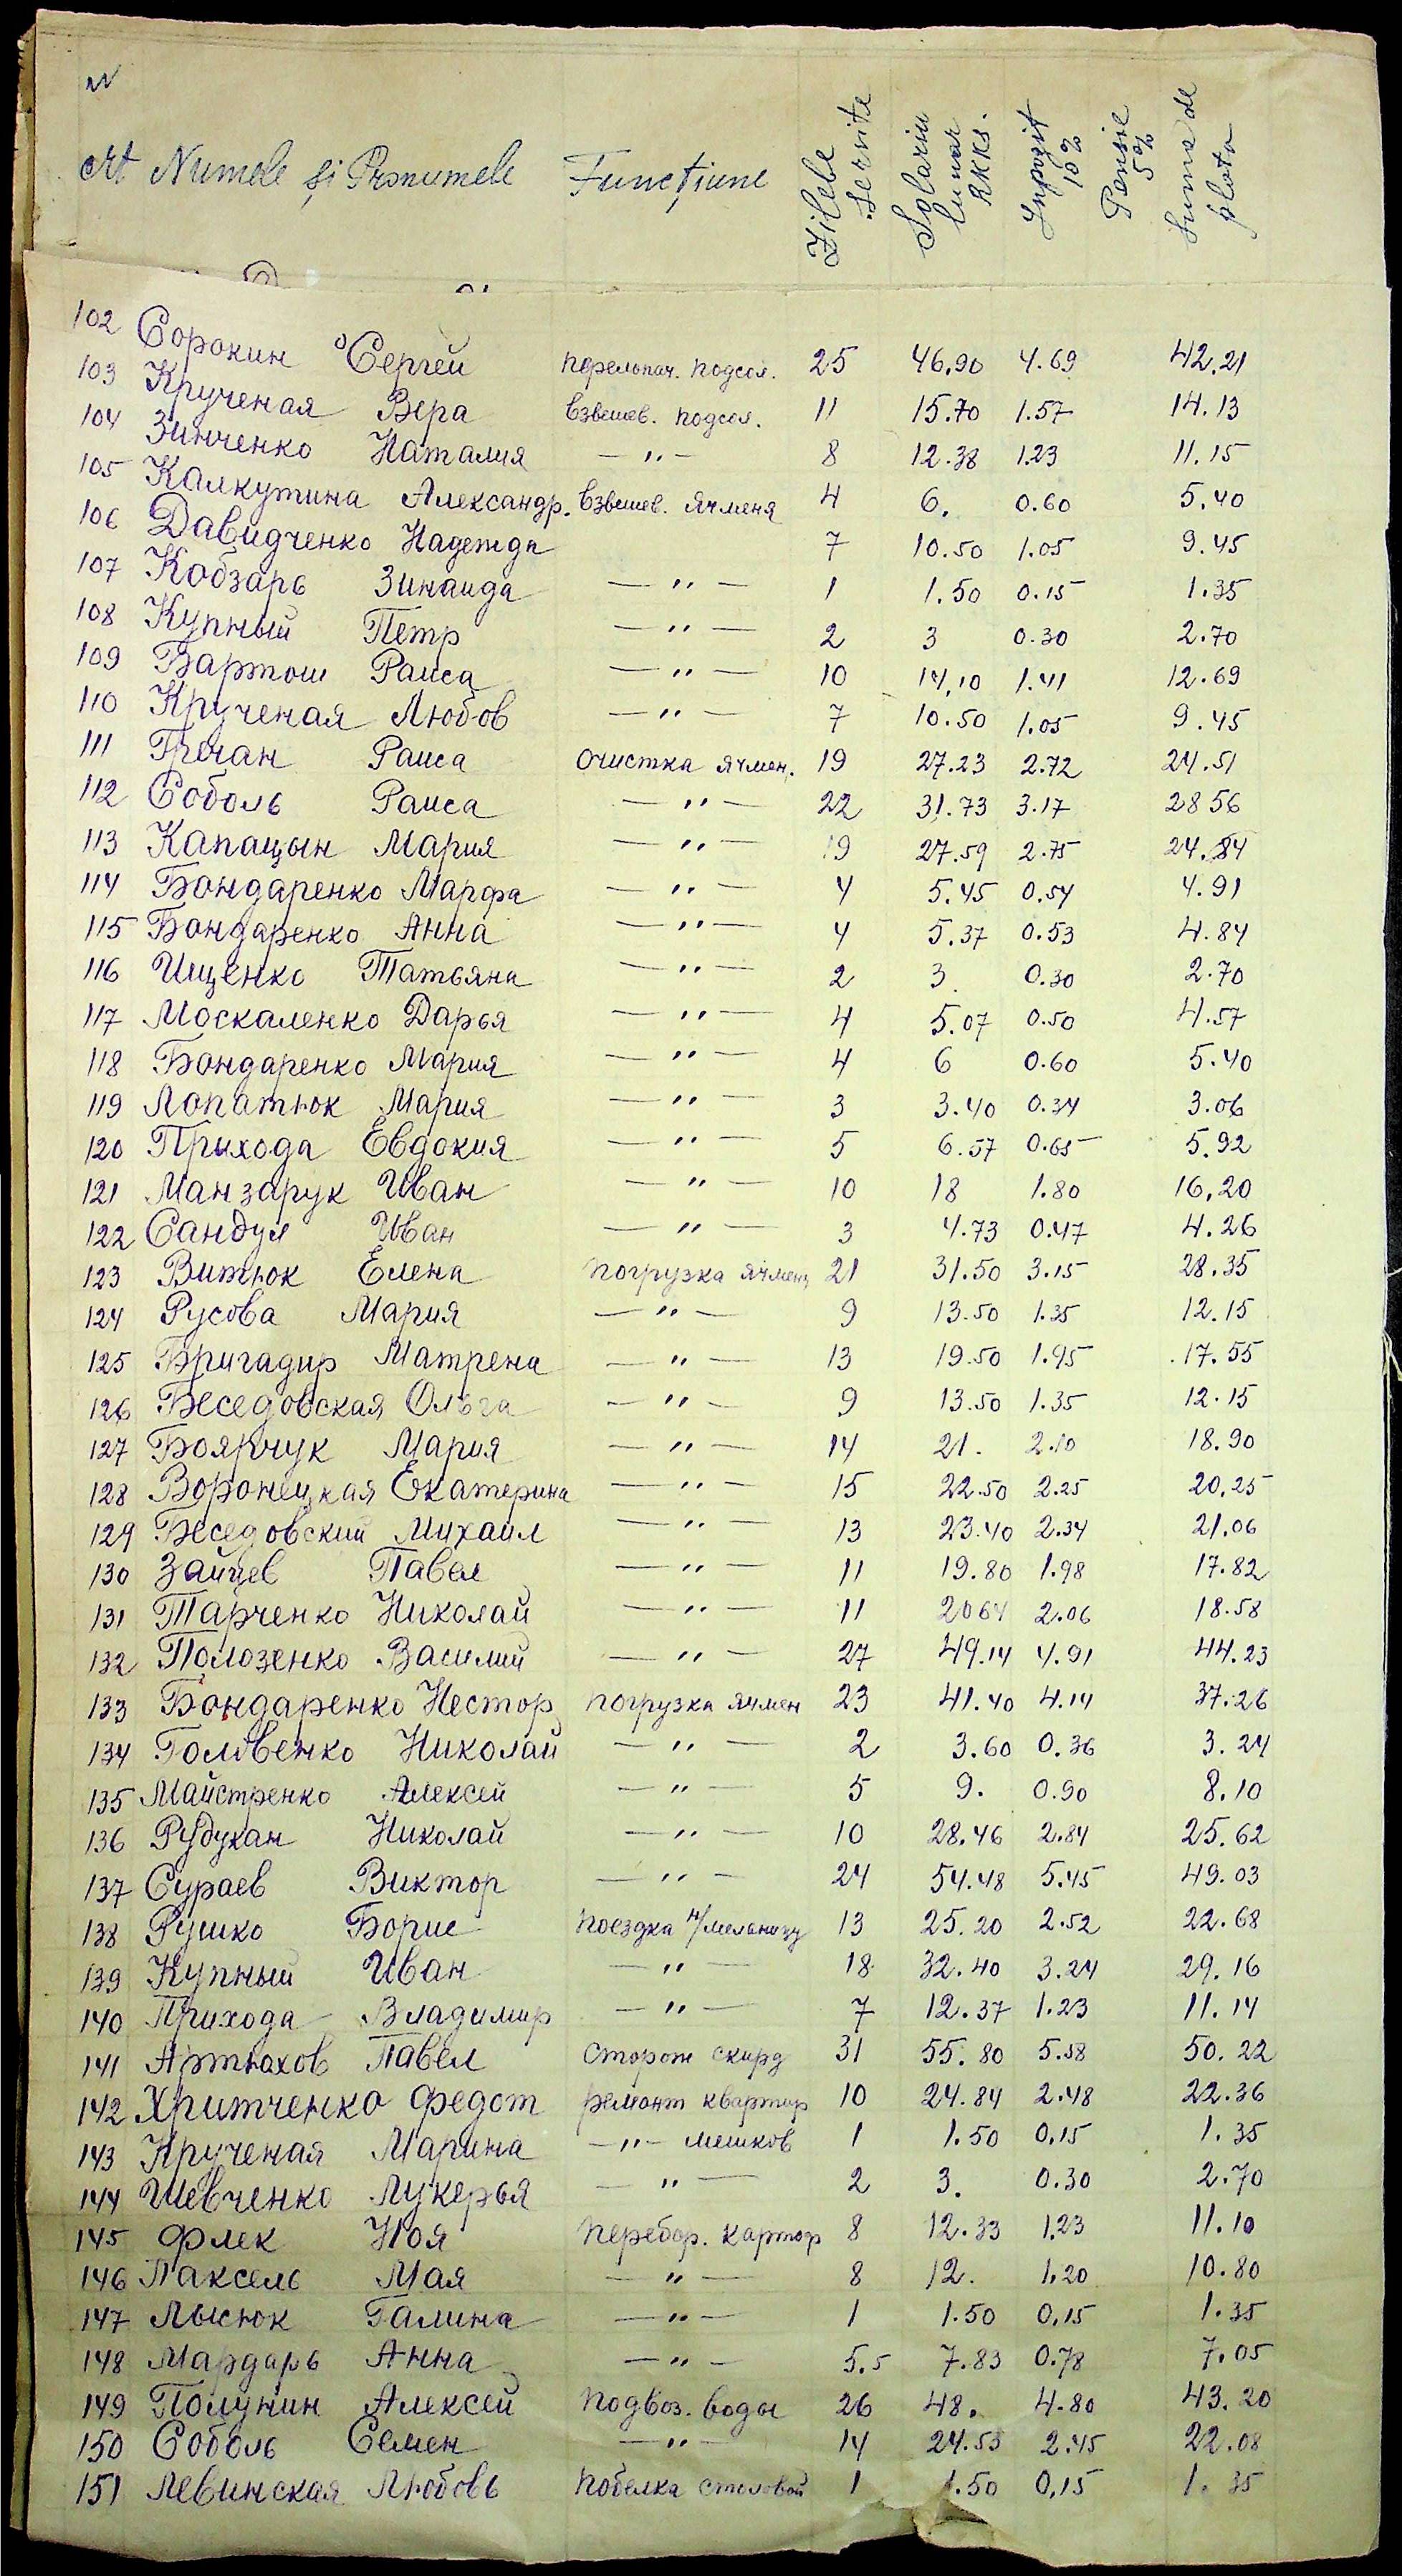 N
crt Numele și Pronumele Funcțiune Zilele servite Salariu lunar RKKS. Impozit 10% Pensie 5% Suma de plata
102 Сорокин Сергей перелопач. подсол. 25 46.90 4.69 42.21
103 Крученая Вера взвешев. подсол. 11 15.70 1.57 14.13
104 Зинченко Наталия — " — 8 12.38 1.23 11.15
105 Калкутина Александр. взвешев. ячменя 4 6. 0.60 5.40
106 Давидченко Надежда 7 10.50 1.05 9.45
107 Кобзарь Зинаида — " — 1 1.50 0.15 1.35
108 Купный Петр — " — 2 3 0.30 2.70
109 Вартош Раиса — " — 10 14,10 1.41 12.69
110 Крученая Любов — " — 7 10.50 1.05 9.45
111 Гречан Раиса очистка ячмен. 19 27.23 2.72 24.51
112 Соболь Раиса — " — 22 31.73 3.17 28 56
113 Капацын Мария — " — 19 27.59 2.75 24.84
114 Бондаренко Марфа — " — 4 5.45 0.54 4.91
115 Бондаренко Анна — " — 4 5.37 0.53 4.84
116 Ищенко Татьяна — " — 2 3 0.30 2.70
117 Москаленко Дарья — " — 4 5.07 0.50 4.57
118 Бондаренко Мария — " — 4 6 0.60 5.40
119 Лопатюк Мария — " — 3 3.40 0.34 3.06
120 Прихода Евдокия — " — 5 6.57 0.65 5.92
121 Манзарук Иван — " — 10 18 1.80 16,20
122 Сандул Иван — " — 3 4.73 0.47 4.26
123 Витюк Елена погрузка ячмен 21 31.50 3.15 28.35
124 Русова Мария — " — 9 13.50 1.35 12.15
125 Бригадир Матрена — " — 13 19.50 1.95 17.55
126 Беседовская Ольга — " — 9 13.50 1.35 12.15
127 Боярчук Мария — " — 14 21. 2.10 18.90
128 Воронецкая Екатерина — " — 15 22.50 2.25 20,25
129 Беседовский Михаил — " — 13 23.40 2.34 21.06
130 Зайцев Павел — " — 11 19.80 1.98 17.82
131 Тарченко Николай — " — 11 20 64 2.06 18.58
132 Полозенко Василий — " — 27 49.14 4.91 44.23
133 Бондаренко Нестор погрузка ячмен 23 41.40 4.14 37.26
134 Головенко Николай — " — 2 3.60 0.36 3.24
135 Майстренко Алексей — " — 5 9. 0.90 8.10
136 Рудукан Николай — " — 10 28.46 2.84 25.62
137 Сураев Виктор — " — 24 54.48 5.45 49.03
138 Рушко Борис поездка н/мельницу 13 25.20 2.52 22.68
139 Купный Иван — " — 18 32.40 3.24 29.16
140 Прихода Владимир — " — 7 12.37 1.23 11.14
141 Артюхов Павел сторож скирд 31 55.80 5.58 50.22
142 Хритченко Федот ремонт квартир 10 24.84 2.48 22.36
143 Крученая Марина — " — мешков 1 1.50 0,15 1.35
144 Шевченко Лукерья — " — 2 3. 0.30 2.70
145 Флек Ноя перебор. картоф 8 12.33 1.23 11.10
146 Паксель Мая — " — 8 12. 1.20 10.80
147 Лысюк Галина — " — 1 1.50 0,15 1.35
148 Мардарь Анна — " — 5.5 7.83 0.78 7.05
149 Полунин Алексей подвоз. воды 26 48. 4.80 43.20
150 Соболь Семен — " — 14 24.53 2.45 22.08
151 Левинская Любовь побелка столовой 1 1.50 0,15 1.35